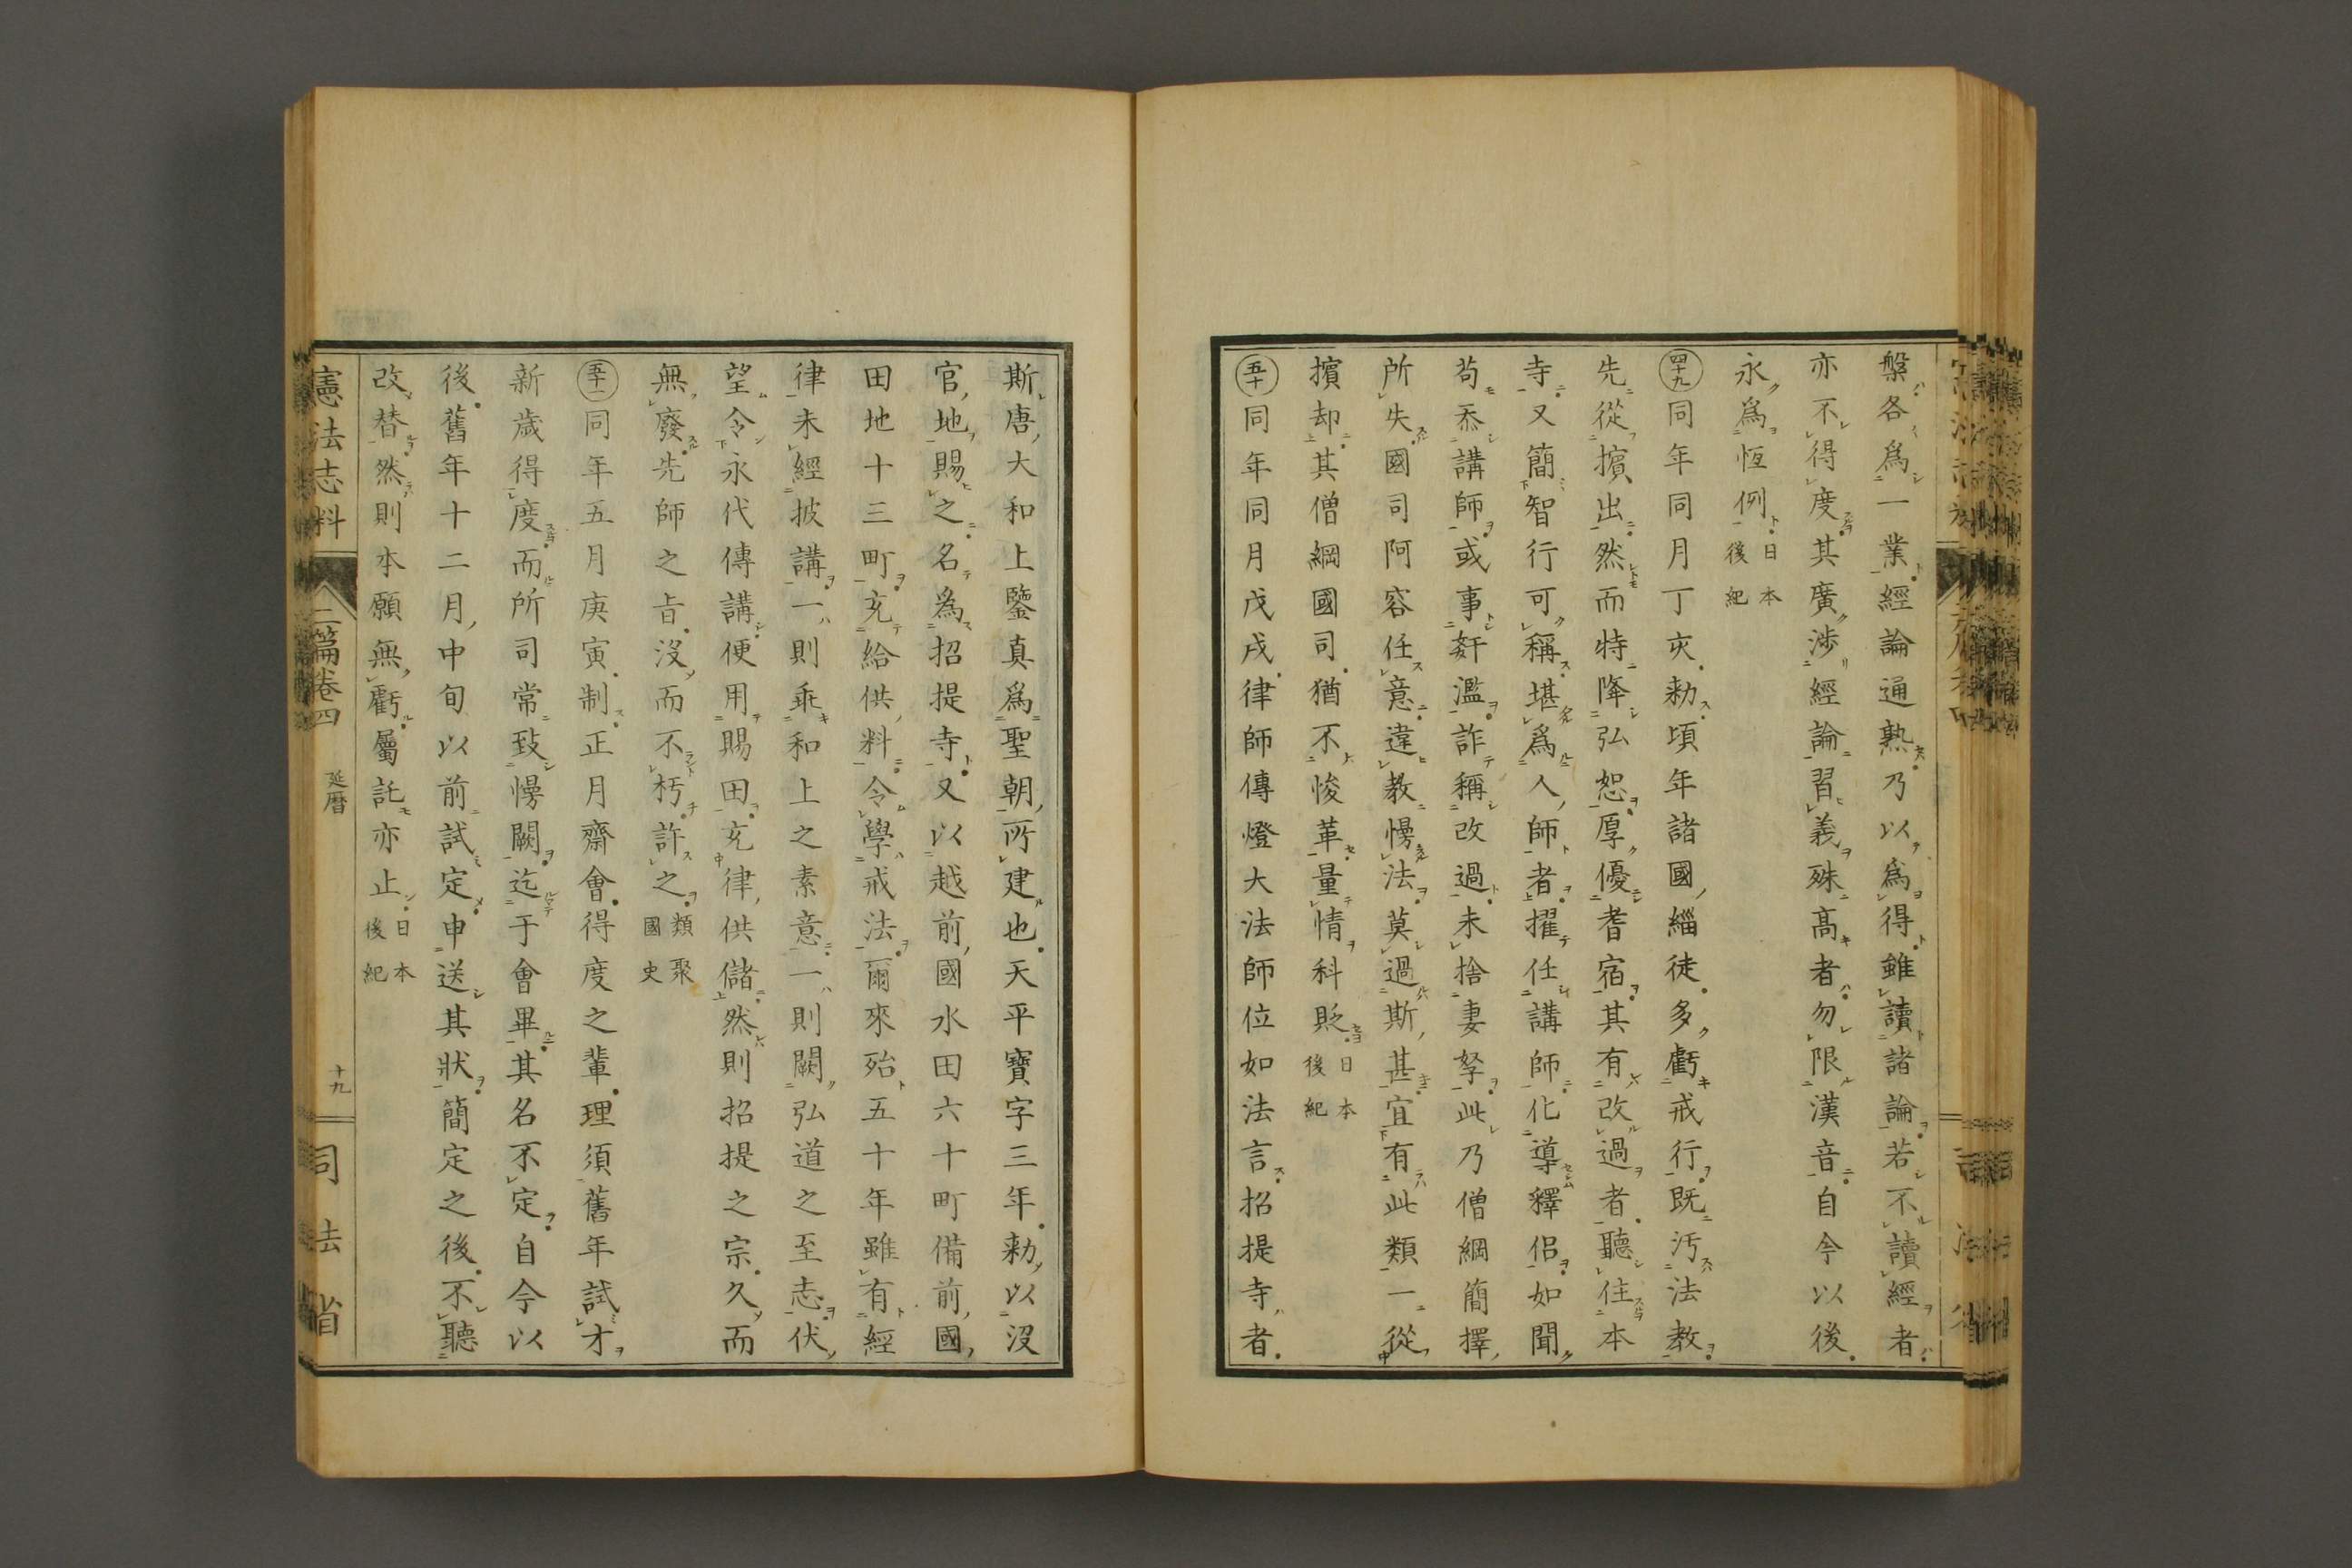 槃各爲一業經論通熟乃以爲得雖讀諸論若不讀經者
亦不得度其廣渉經論習義殊髙者勿限漢音自今以後
永爲恆例日本後紀
四十九同年同月丁亥勅頃年諸國緇徒多虧戒行既汚法教
先從擯出然而特降弘恕厚優耆宿其有改過者聽住本
寺又簡智行可稱堪爲人師者擢任講師化導釋侶如聞
苟忝講師或事姧濫詐稱改過未捨妻孥此乃僧綱簡擇
所失國司阿容任意違教慢法莫過斯甚宜有此類一從
擯却其僧綱國司猶不悛革量情科貶日本後紀
五十同年同月戊戌律師傳燈大法師位如法言招提寺者
斯唐大和上鑒真爲聖朝所建也天平寶字三年勅以沒
官地賜之名爲招提寺又以越前國水田六十町備前國
田地十三町充給供料令學戒法爾來殆五十年雖有經
律未經披講一則乖和上之素意一則闕弘道之至志伏
望令永代傳講便用賜田充律供儲然則招提之宗久而
無廢先師之旨沒而不朽許之類聚國史
五十一同年五月庚寅制正月齋會得度之輩理須舊年試才
新歳得度而所司常致慢闕迄于會畢其名不定自今以
後舊年十二月中旬以前試定申送其狀簡定之後不聽
改替然則本願無虧屬託亦止日本後紀
憲法志料 二篇卷四 延暦 十九 司法省